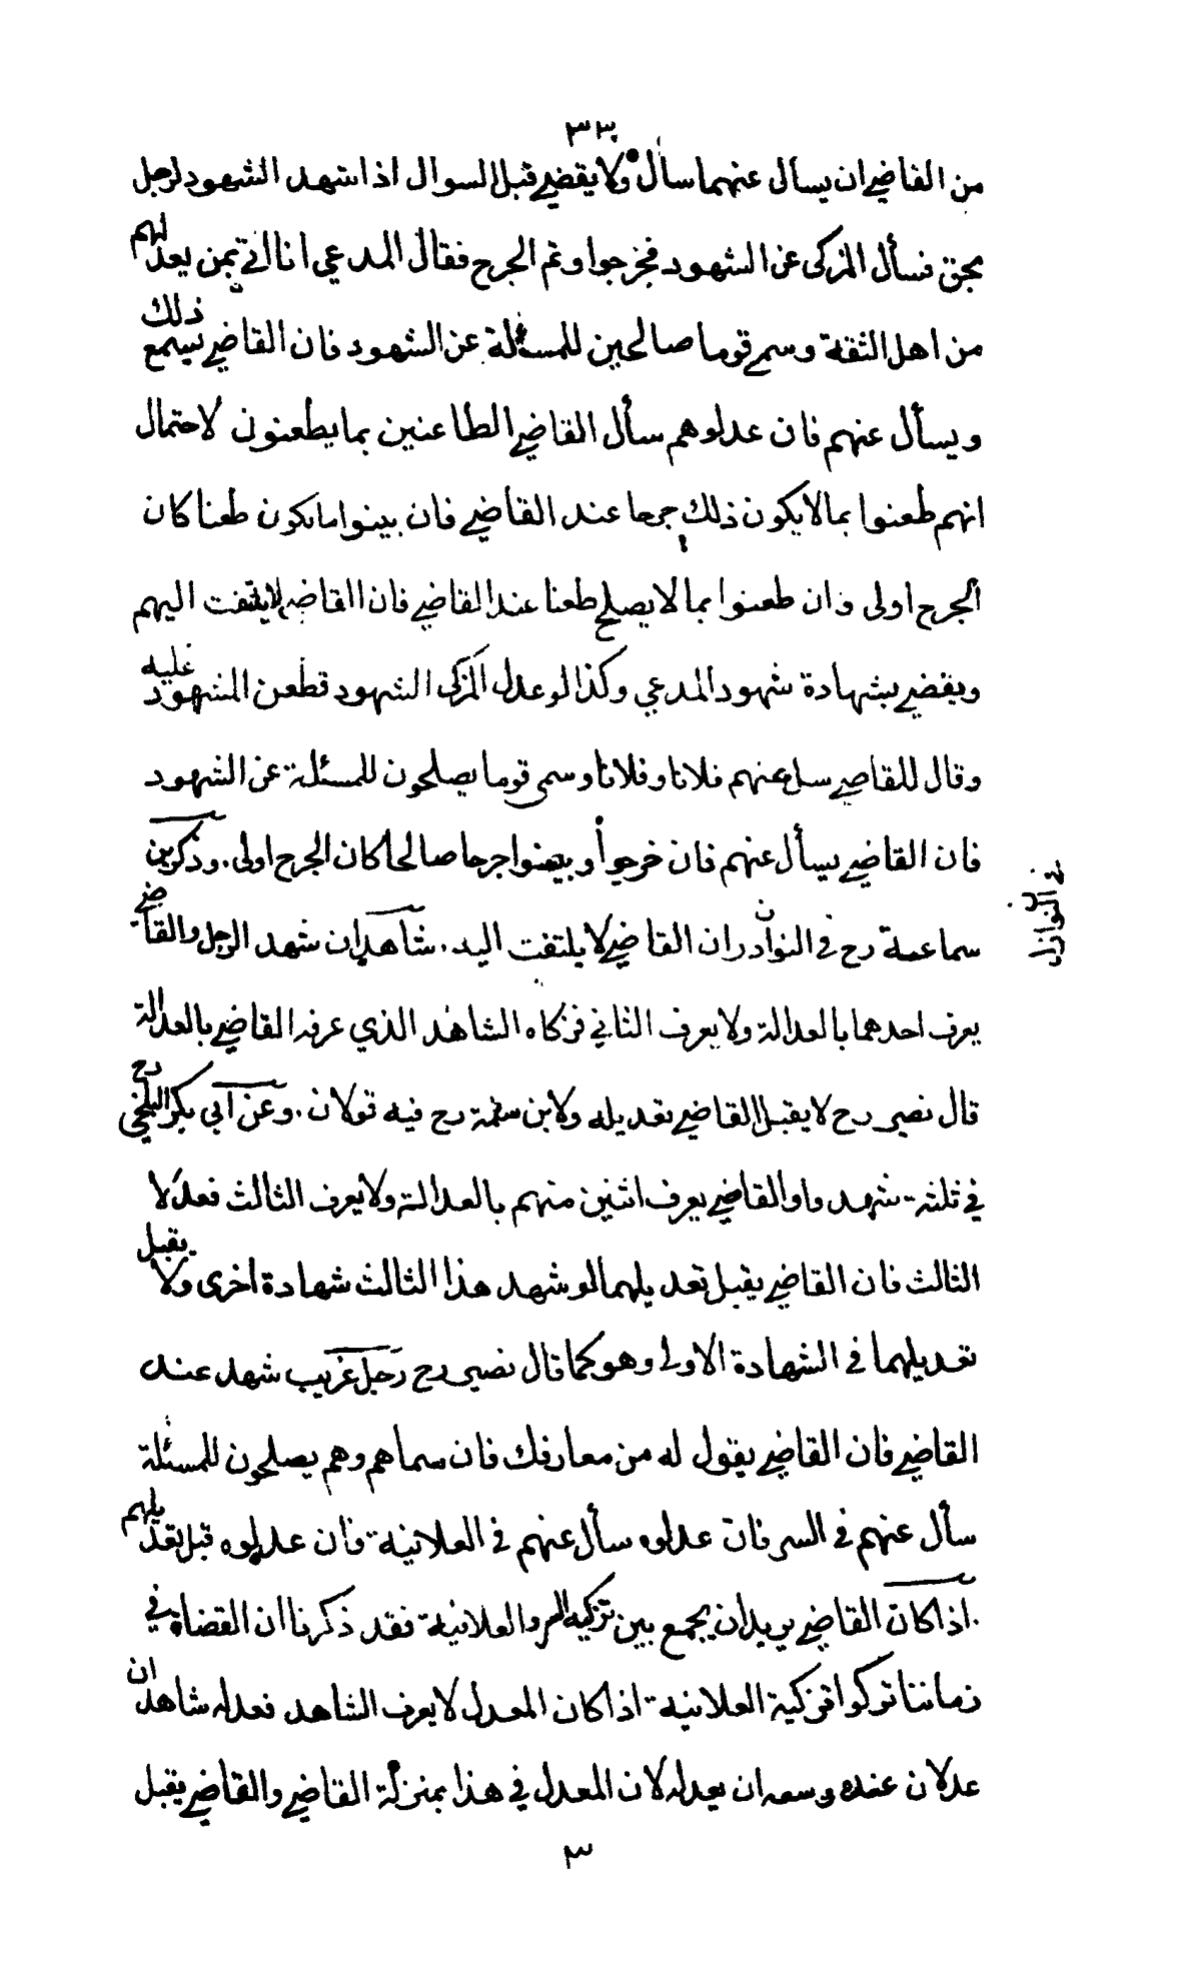 ٣٣
من القاضي ان يسأل عنهما سأل ولا يقضي قبل السوال اذا شهد الشهود لرجل
بحق فسأل المزكى عن الشهود فجرحوا وتم الجرح فقال المدعي انا اٰتي بمن يعدلهم
من اهل الثقة وسمى قوما صالحين للمسئلة عن الشهود فان القاضي يسمع ذلك
ويسأل عنهم فان عدلوهم سأل القاضي الطاعنين بما يطعنون لاحتمال
انهم طعنوا بما لا يكون ذلك جرحا عند القاضي فان بينوا ما يكون طعنا كان
الجرح اولى وان طعنوا بما لا يصلح طعنا عند القاضي فان القاضي لا يلتفت اليهم
ويقضي بشهادة شهود المدعي وكذا لو عدل المزكى الشهود فطعن المشهود عليه
وقال للقاضي سل عنهم فلانا وفلانا وسمى قوما يصلحون للمسئلة عن الشهود
فان القاضي يسأل عنهم فان جرحوا وبينوا جرحا صالحا كان الجرح اولى . وذكر ابن
سماعة رح في النوادر ان القاضي لا يلتفت اليه . شاهدان شهدا لرجل والقاضي
في النوازل
يعرف احدهما بالعدالة ولا يعرف الثاني فزكاه الشاهد الذي عرفه القاضي بالعدالة
قال نصير رح لا يقبل القاضي تعديله ولابن سلمة رح فيه قولان . وعن ابي بكر البلخي رح
في ثلثة شهدوا والقاضي يعرف اثنين منهم بالعدالة ولا يعرف الثالث فعدلا
الثالث فان القاضي يقبل تعديلهما لو شهد هذا الثالث شهادة اخرى ولا يقبل
تعديلهما في الشهادة الاولى وهو كما قال نصير رح رجل غريب شهد عند
القاضي فان القاضي يقول له من معارفك فان سماهم وهم يصلحون للمسئلة
سأل عنهم في السر فان عدلوه سأل عنهم في العلانية فان عدلوه قبل تعديلهم
اذا كان القاضي يريد ان يجمع بين تزكية السر والعلانية فقد ذكرنا ان القضاة في
زماننا تركوا تزكية العلانية اذا كان المعدل لا يعرف الشاهد فعدله شاهدان
عدلان عنده وسعه ان يعدله لان المعدل في هذا بمنزلة القاضي والقاضي يقبل
٣